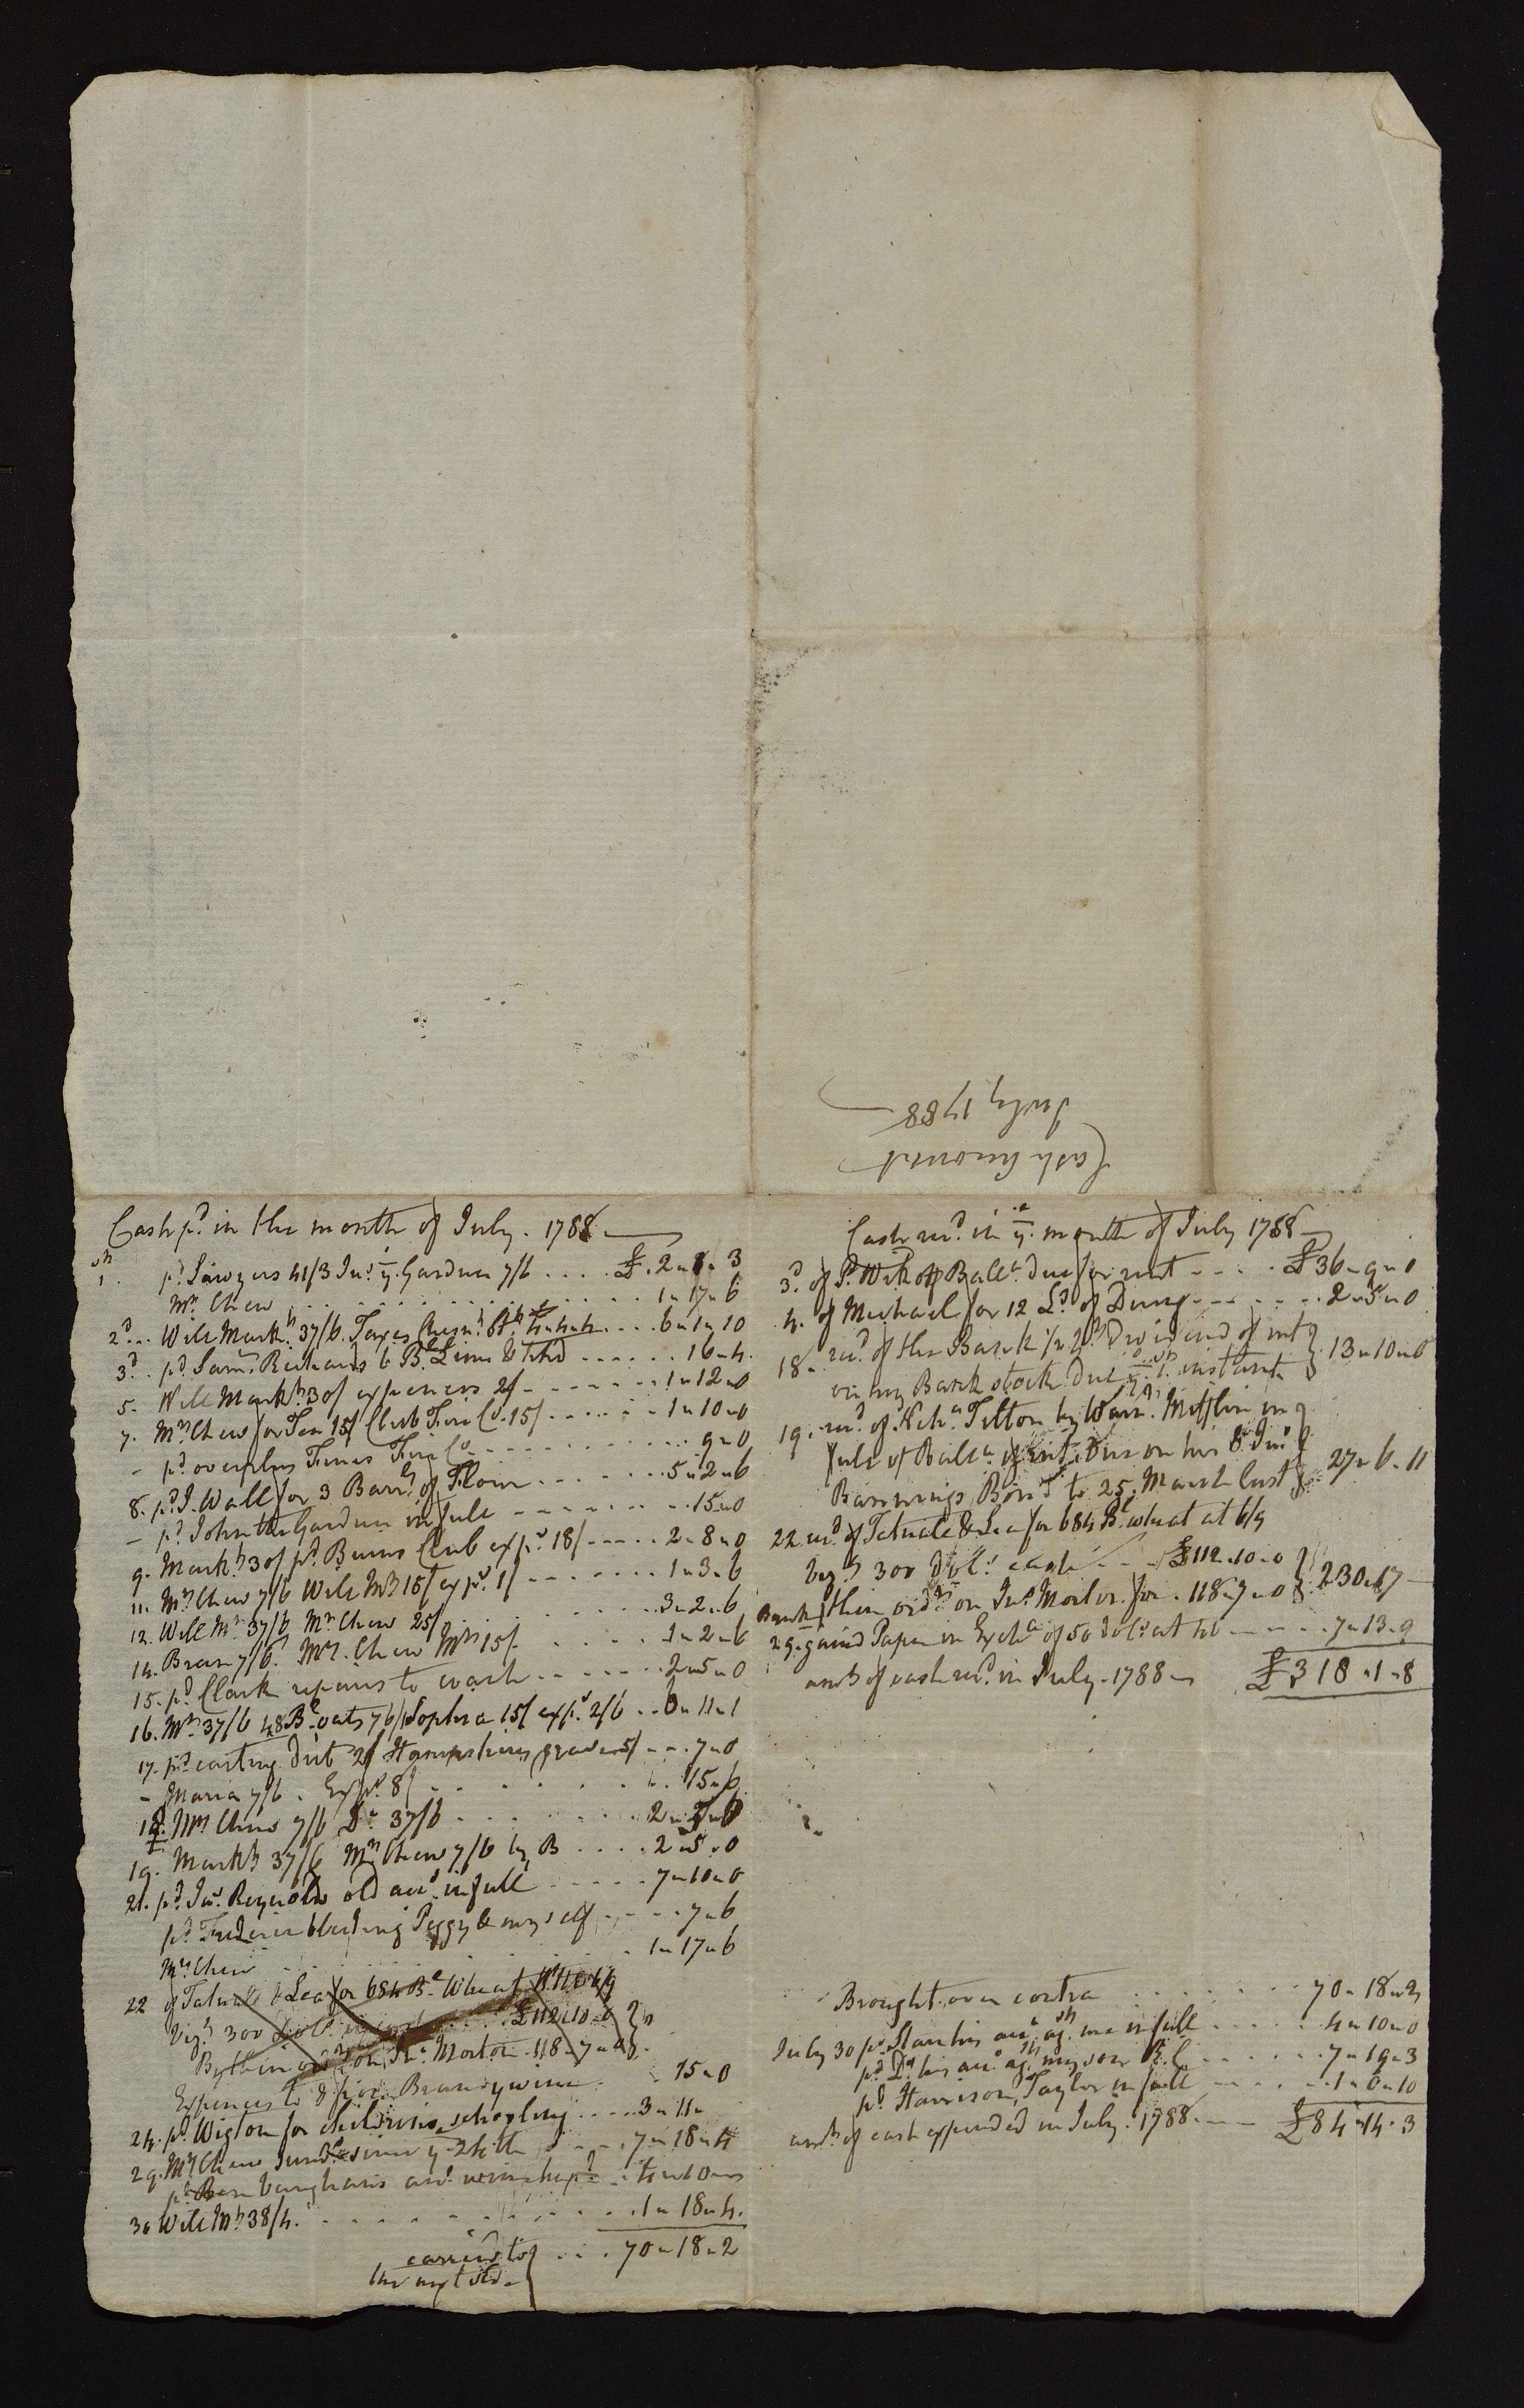 Cash Account
July 1788
Cash pd. in the month of July. 1788
1st. pd. Sawyers 41/3 Jno. ye. Gardner 7/6 .... £.2"8"3
Mrs. Chew .... 1"17"6
2d... Will Markt. 37/6. Taxes .... 6"1"10
3d.. pd. Saml. Richards 6 Bl. Lime .... 16"4.
5. Will Markt. 30/ expences 2/ .... 1"12"0
7. Mrs. Chew for Tea 15/ Club Fire Co. 15/ .... 1"10"0
- pd. overplus Fines Fire Co. .... 9"0
8. pd. J. Wall for 3 Barrls. of Flour .... 5"2"6
- pd. John the Gardner in full .... 15"0
9. Markt. 30/ pd. Burns Club exps. 18/ .... 2"8"0
11. Mrs. Chew 7/6 Will Mt. 15/ exps. 1/ .... 1"3"6
12. Will Mt. 37/6 Mrs. Chew 25/ .... 3"2"6
14. Bran 7/6. Mrs. Chew Mt. 15/ .... 1"2"6
15. pd. Clark repairs to coach .... 2"5"0
16. Mt. 37/6 48 Bl. oats Sophia 15/ exps. 2/6 .. 11"1
17. pd. carting dirt 2/ 5/ .... 7"0
- Maria 7/6. Exps. 8/ .... 15"6
18. Mrs. Chew 7/6 Do. 37/6 .... 2"5"0
19. Markt. 37/6 Mrs. Chew 7/6 by B .... 2"5"0
21. pd. Jno. Reynolds old acct. in full .... 7"10"0
pd. Frederic bleeding Peggy & myself .... 7"6
Mrs. Chew .... 1"17"6
22 of Tatnall & Lea for 684 Bl. Wheat at 6/9
Vizt. 300 Dolls. .... £112"10"0
By their ordr. on Jno. Morton. 118"7"0
Expences to & from Brandywine .. 15"0
24. pd. Wigton for childrens schooling .... 3"11"
29. Mrs. Chew since ye. 24th .... 7"18"4
pd. Ben Vaughans acct. .... 4"10"
30 Will Mt. 38/4. .... 1"18"4.
carried to
the next side } ... 70"18"2
Cash recd. in ye. month of July 1788
3d. of P. Wikoff Balle. due for rent .... £36"9"0
4. of Michael for 12 Lds. of Dung .... 2"5"0
18. recd. of the Bank Dividend of int
on my Bank stock due ye. instant } 13"10"0
19. recd. of Neha. Tilton by Warnr. Mifflin in
full of Balle. of int. due on his & Jno.
Bannings Bond to 25. March last } 27"6"11
22 recd. of Tatnall & Lea for 684 Bl. wheat at 6/9
Vizt. 300 Dolls. cash .... £112.10.0
Bank their ordr. on Jno. Morton for . 118"7"0 } 230"17
29. gained Paper in Excha. of 50 Dols. at .... 7"13"9
amt. of cash recd. in July. 1788 £318"1"8
Brought over contra .... 70"18"2
July 30 pd. his acct. agt. me in full .... 4"10"0
pd. Do. his acct. agt. my son B. C. .... 7"19"3
pd. Harrison, Taylor in full .... 1"6"10
amt. of cash expended in July. 1788 .... £84"14"3